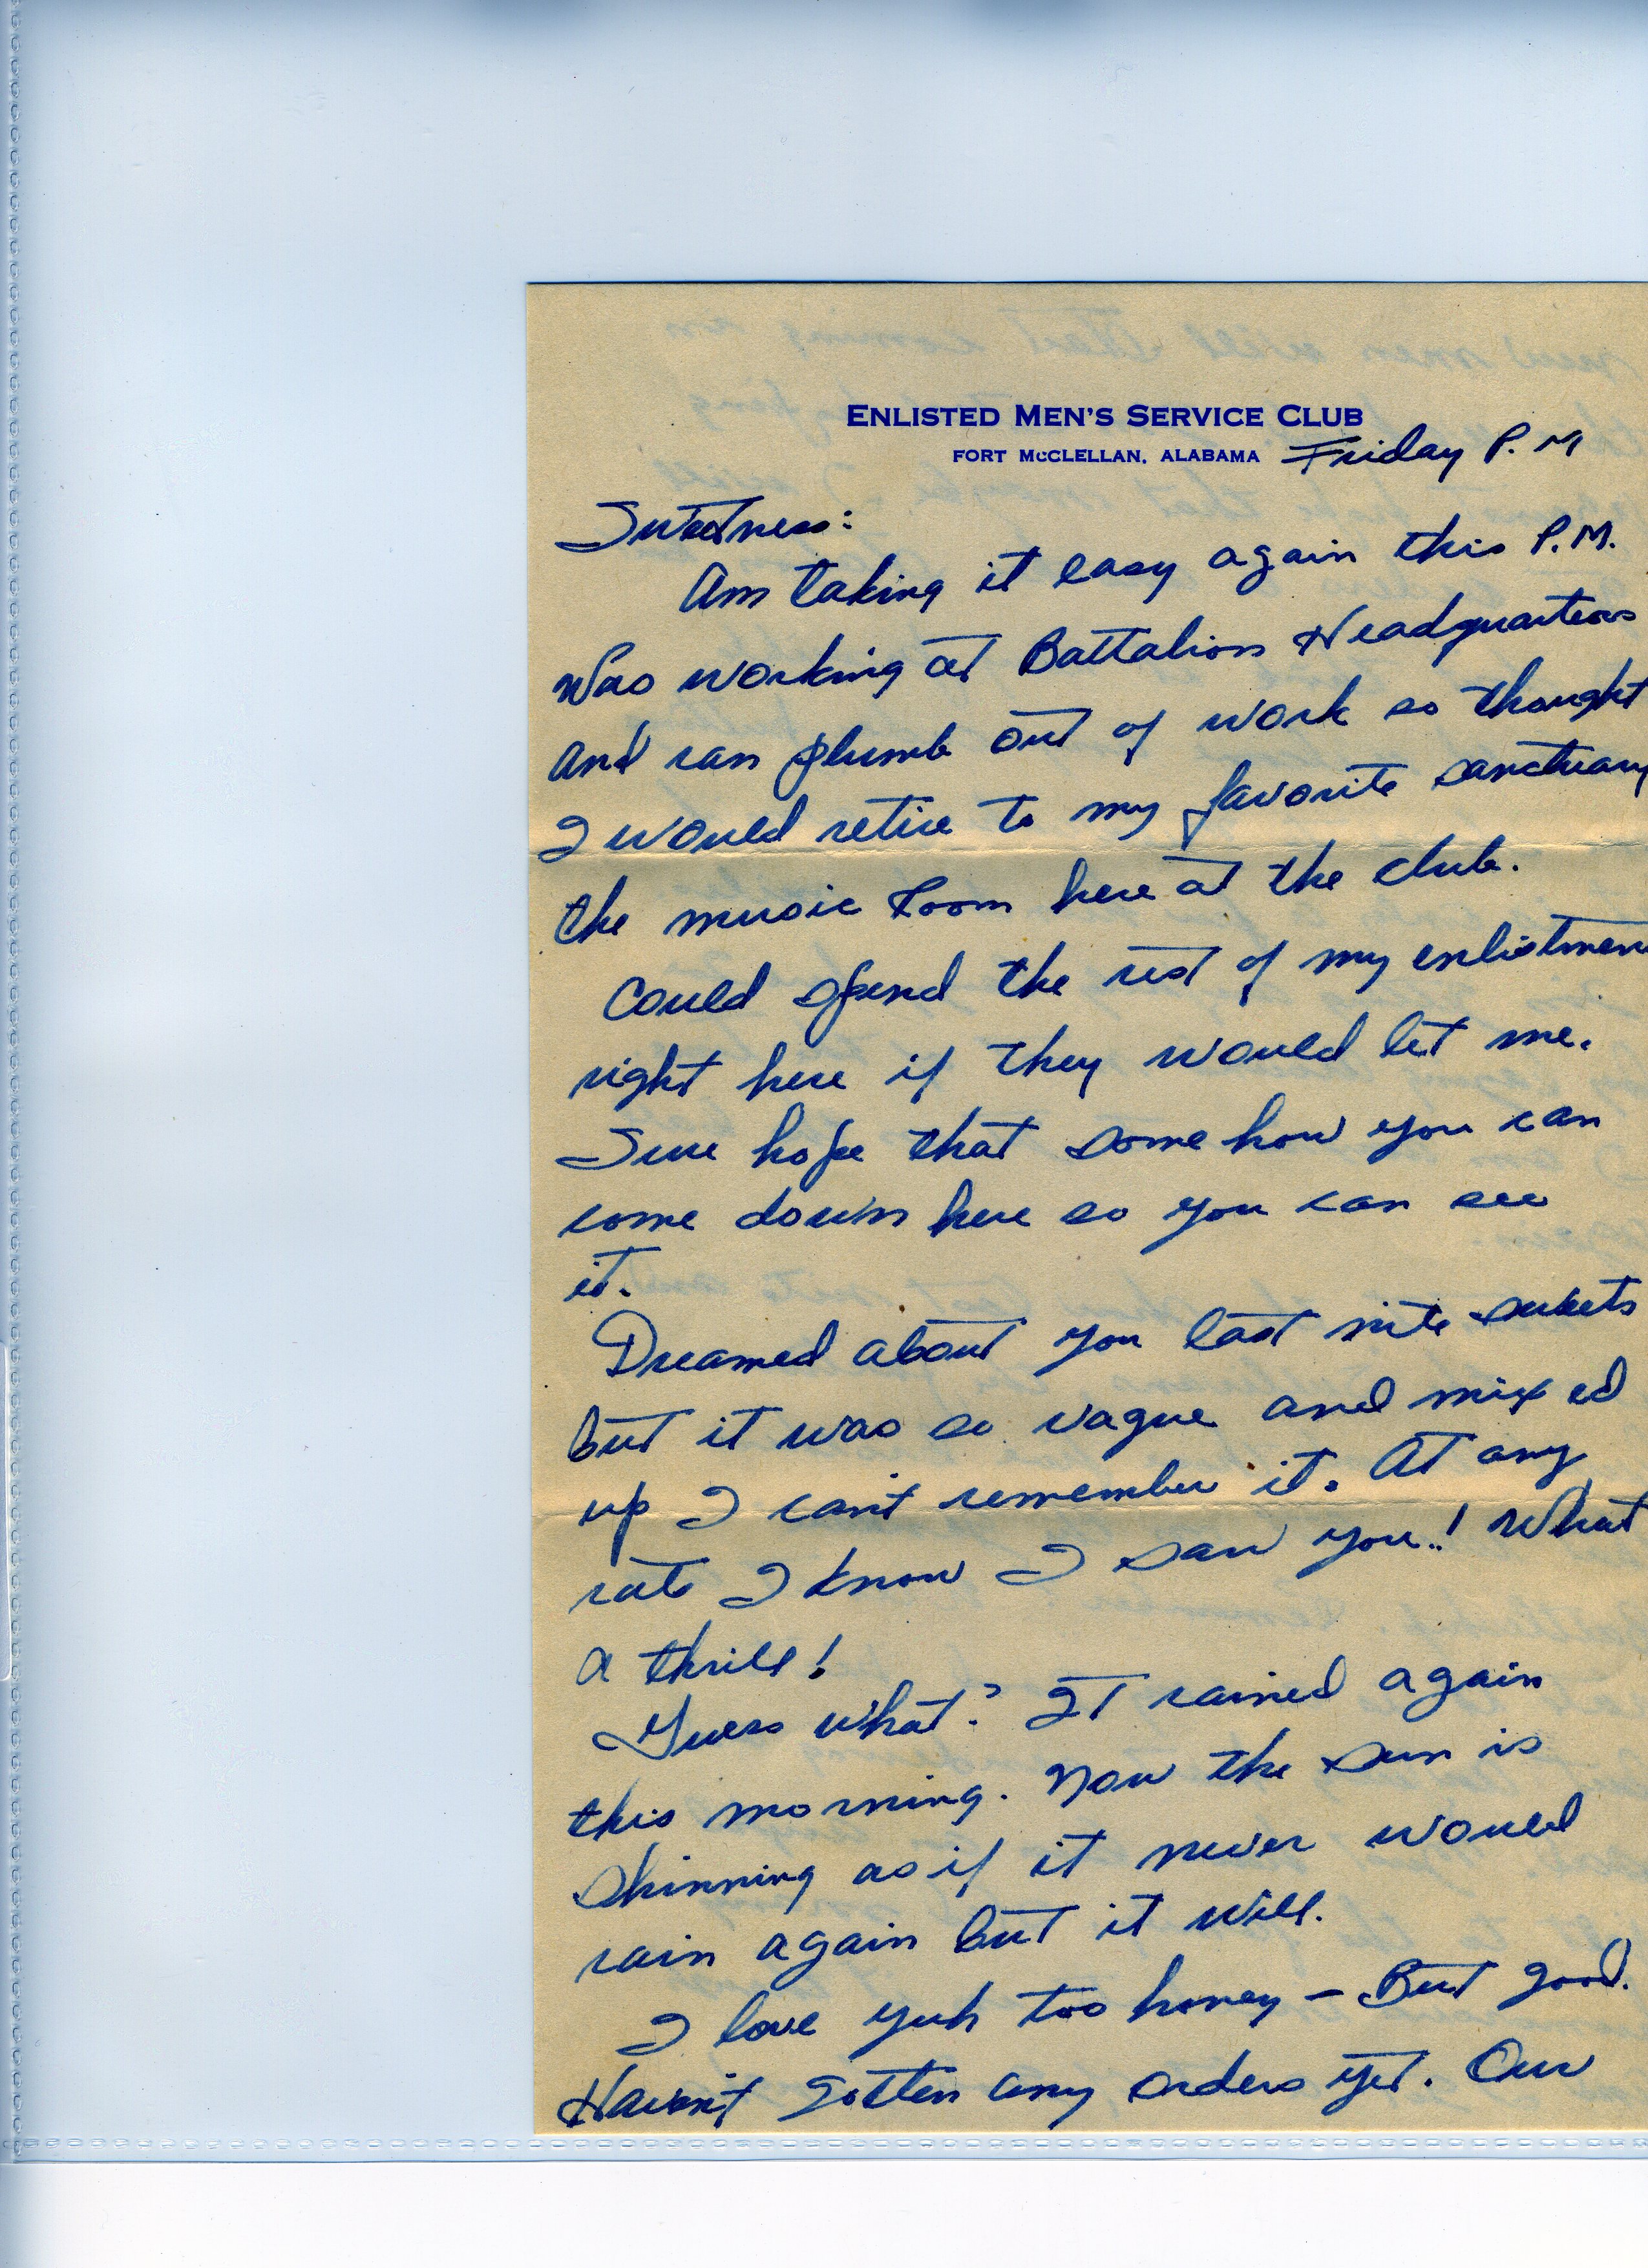 ENLISTED MEN'S SERVICE CLUB
FORT McCLELLAN, ALABAMA Friday P.M
Sweetness:
Am taking it easy again this P.M.
Was working at Battalion Headquarters
and ran plumb out of work so thought
I would retire to my favorite sanctuary
the music room here at the club.
Could spend the rest of my enlistmen
right here if they would let me.
Sure hope that some how you can
come down here so you can see
it.
Dreamed about you last nite sweets
but it was so vague and mixed
up I can't remember it. At any
rate I know I saw you..! What
a thrill!
Guess what? It rained again
this morning. Now the sun is
shinning as if it never would
rain again but it will.
I love yuh too honey - But good.
Haven't gotten any orders yet. Our